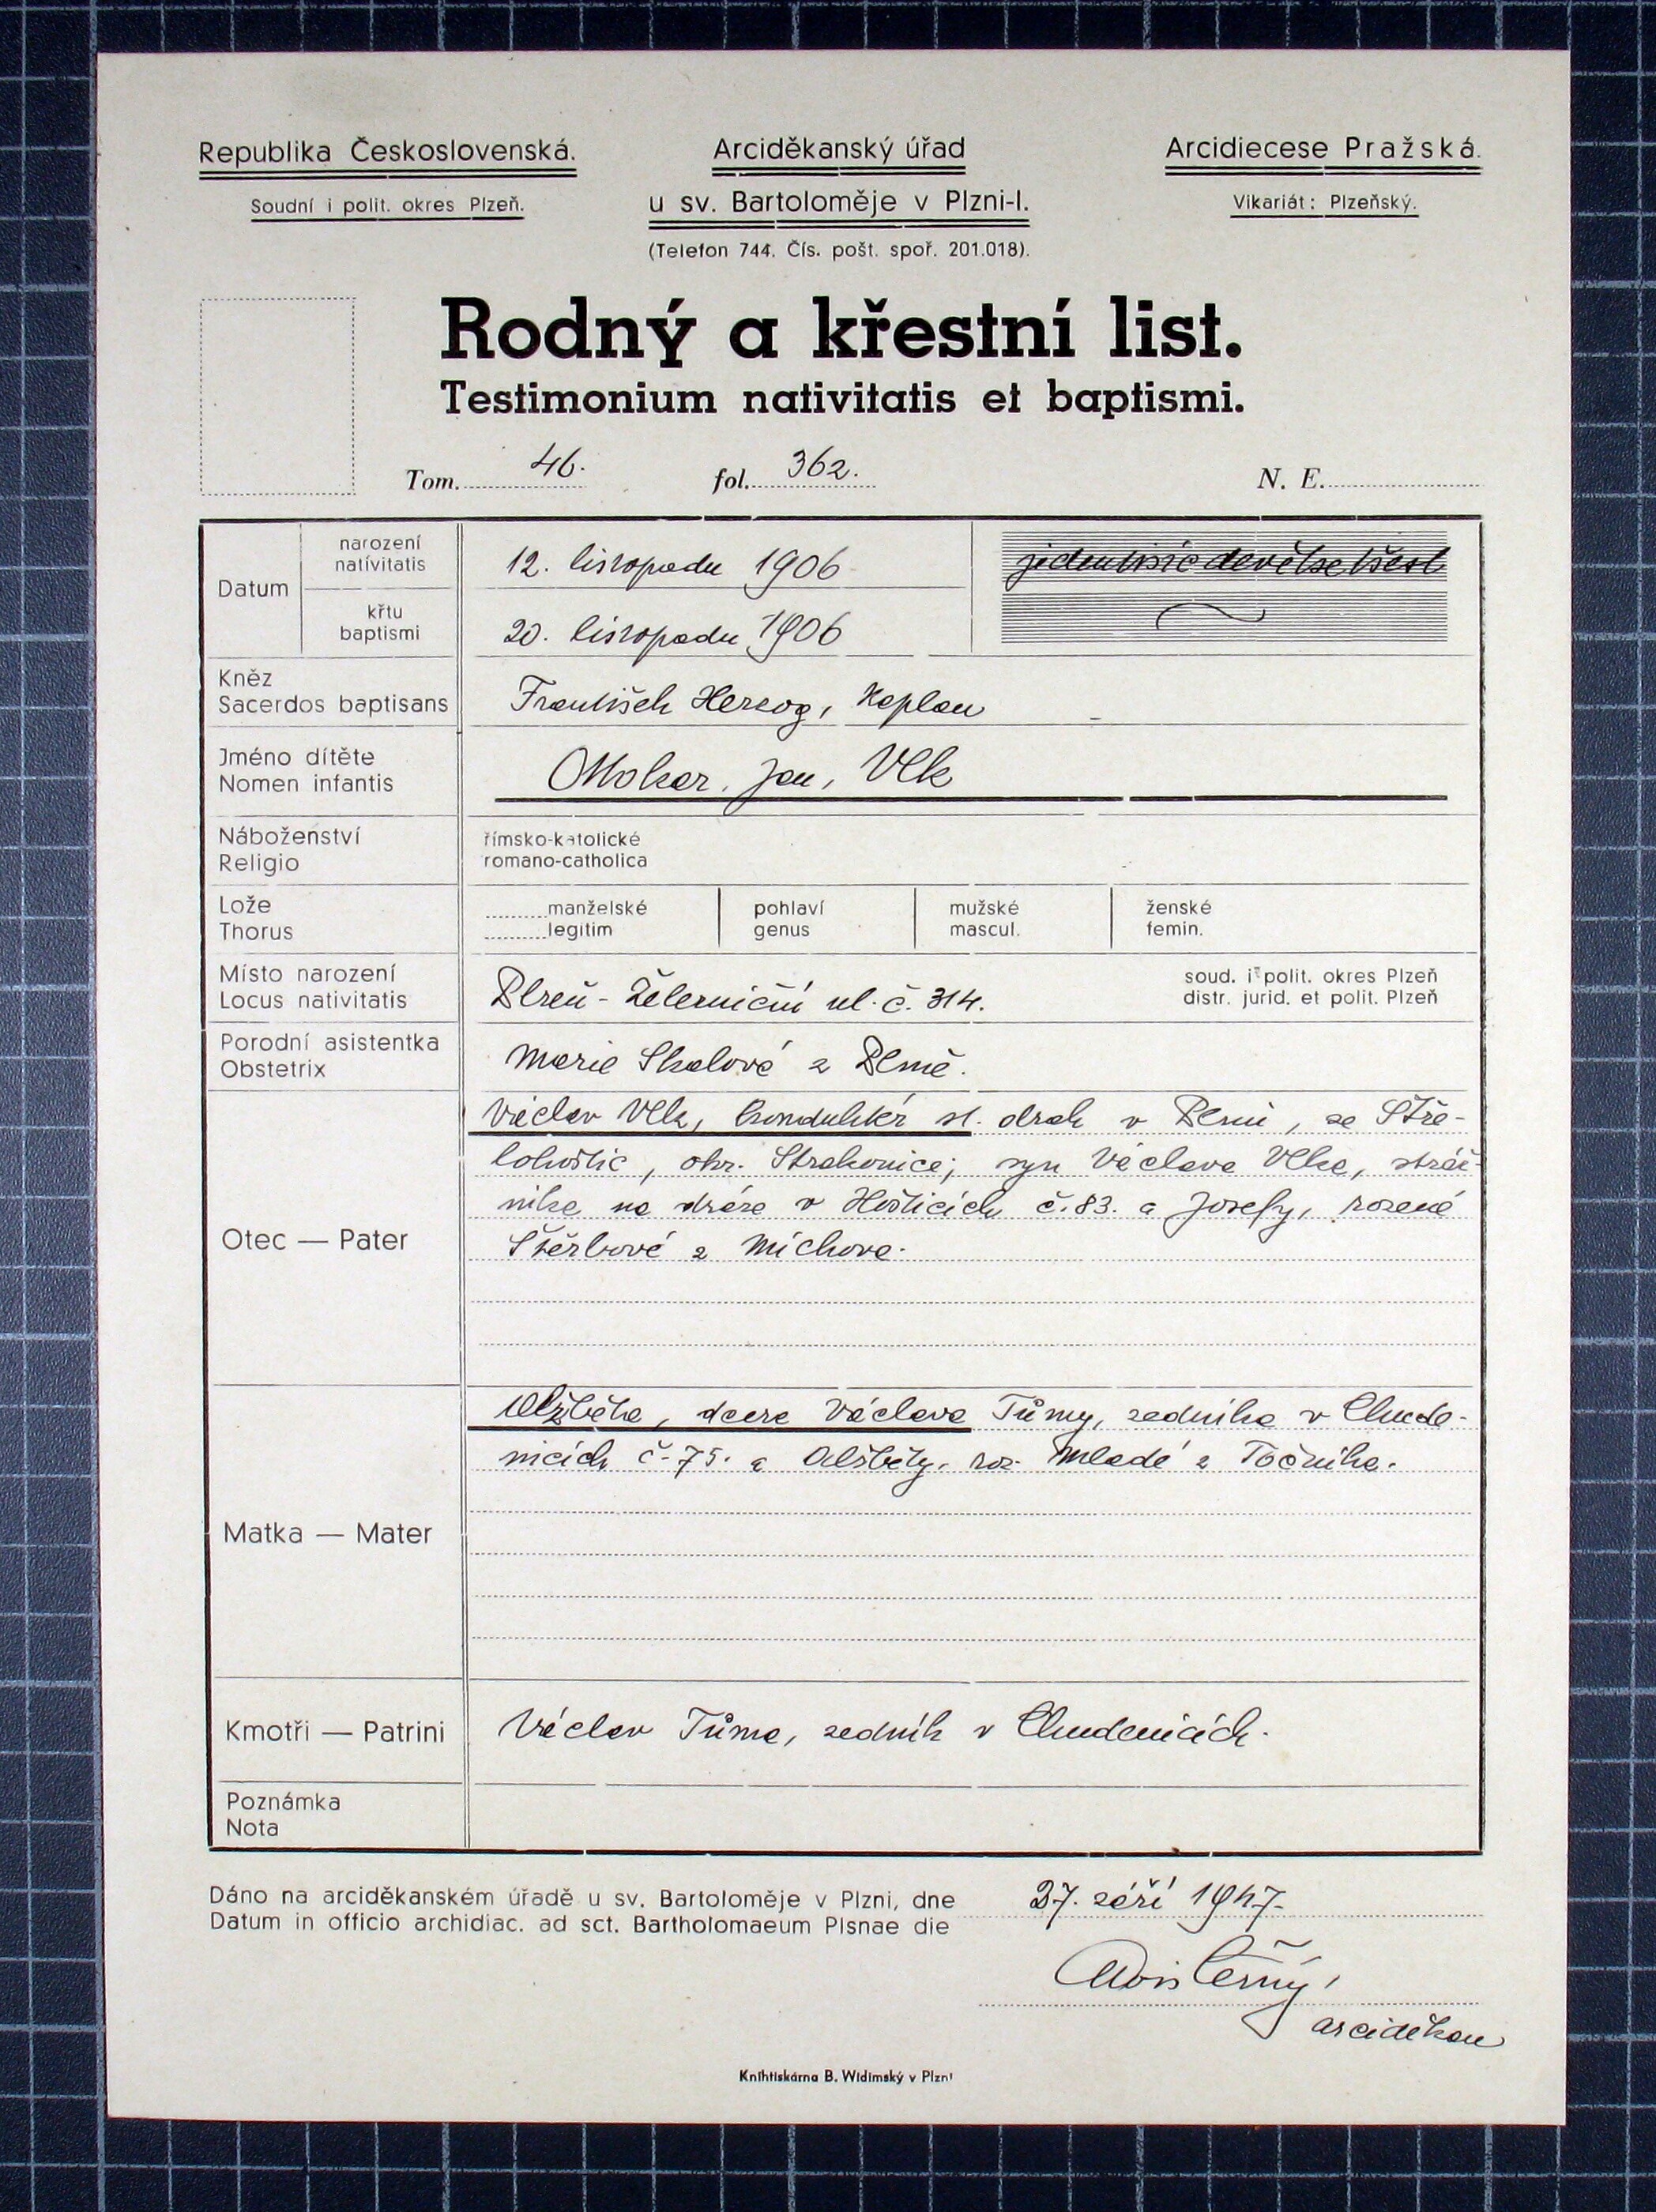 Republika Československá.
Soudní i polit. okres Plzeň.
Arciděkanský úřad
u sv. Bartoloměje v Plzni-I.
(Telefon 744. Čís. pošt. spoř. 201.018).
Arcidiecese Pražská.
Vikariát: Plzeňský.
Rodný a křestní list.
Testimonium nativitatis et baptismi.
Tom. 46. fol. 362. N. E.
Datum
narození
nativitatis
12. listopadu 1906
jedentisíc devětsetšest
křtu
baptismi
20. listopadu 1906
Kněz
Sacerdos baptisans
František Herzog, kaplan
Jméno dítěte
Nomen infantis
Ottokar, Jan, Vlk
Náboženství
Religio
římsko-katolické
romano-catholica
Lože
Thorus
manželské
legitim
pohlaví
genus
mužské
mascul.
ženské
femin.
Místo narození
Locus nativitatis
Plzeň - Železniční ul. č. 314.
soud. i polit. okres Plzeň
distr. jurid. et polit. Plzeň
Porodní asistentka
Obstetrix
Marie Skalová z Plzně.
Otec — Pater
Václav Vlk, konduktér st. drah v Plzni, ze Stře-
lohoštic, okr. Strakonice; syn Václava Vlka, stráž-
níka na dráze v Hošticích č. 83. a Josefy, rozené
Štěrbové z Míchova.
Matka — Mater
Alžběta, dcera Václava Tůmy, zedníka v Chude-
nicích č. 75. a Alžběty, roz. Mladé z Točníka.
Kmotři — Patrini
Václav Tůma, zedník v Chudenicích.
Poznámka
Nota
Dáno na arciděkanském úřadě u sv. Bartoloměje v Plzni, dne
Datum in officio archidiac. ad sct. Bartholomaeum Plsnae die
27. září 1947.
Alois Černý,
arciděkan
Knihtiskárna B. Widimský v Plzni